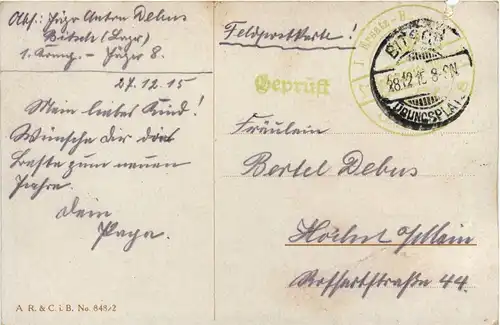 Abs: Jäger Anton Debus
Bitsch (Lager)
1. Komp. – Jäger 8.
27.12.15
Mein liebes Kind!
Wünsche Dir das
Beste zum neuen
Jahre.
Dein
Papa.
A R. & C. i. B. No. 848/2
Feldpostkarte!
Geprüft
BITSCH
28.12.15 8-9N.
ÜBUNGSPLATZ
Fräulein
Bertel Debus
Höchst a/Main
Rossertstraße 44.